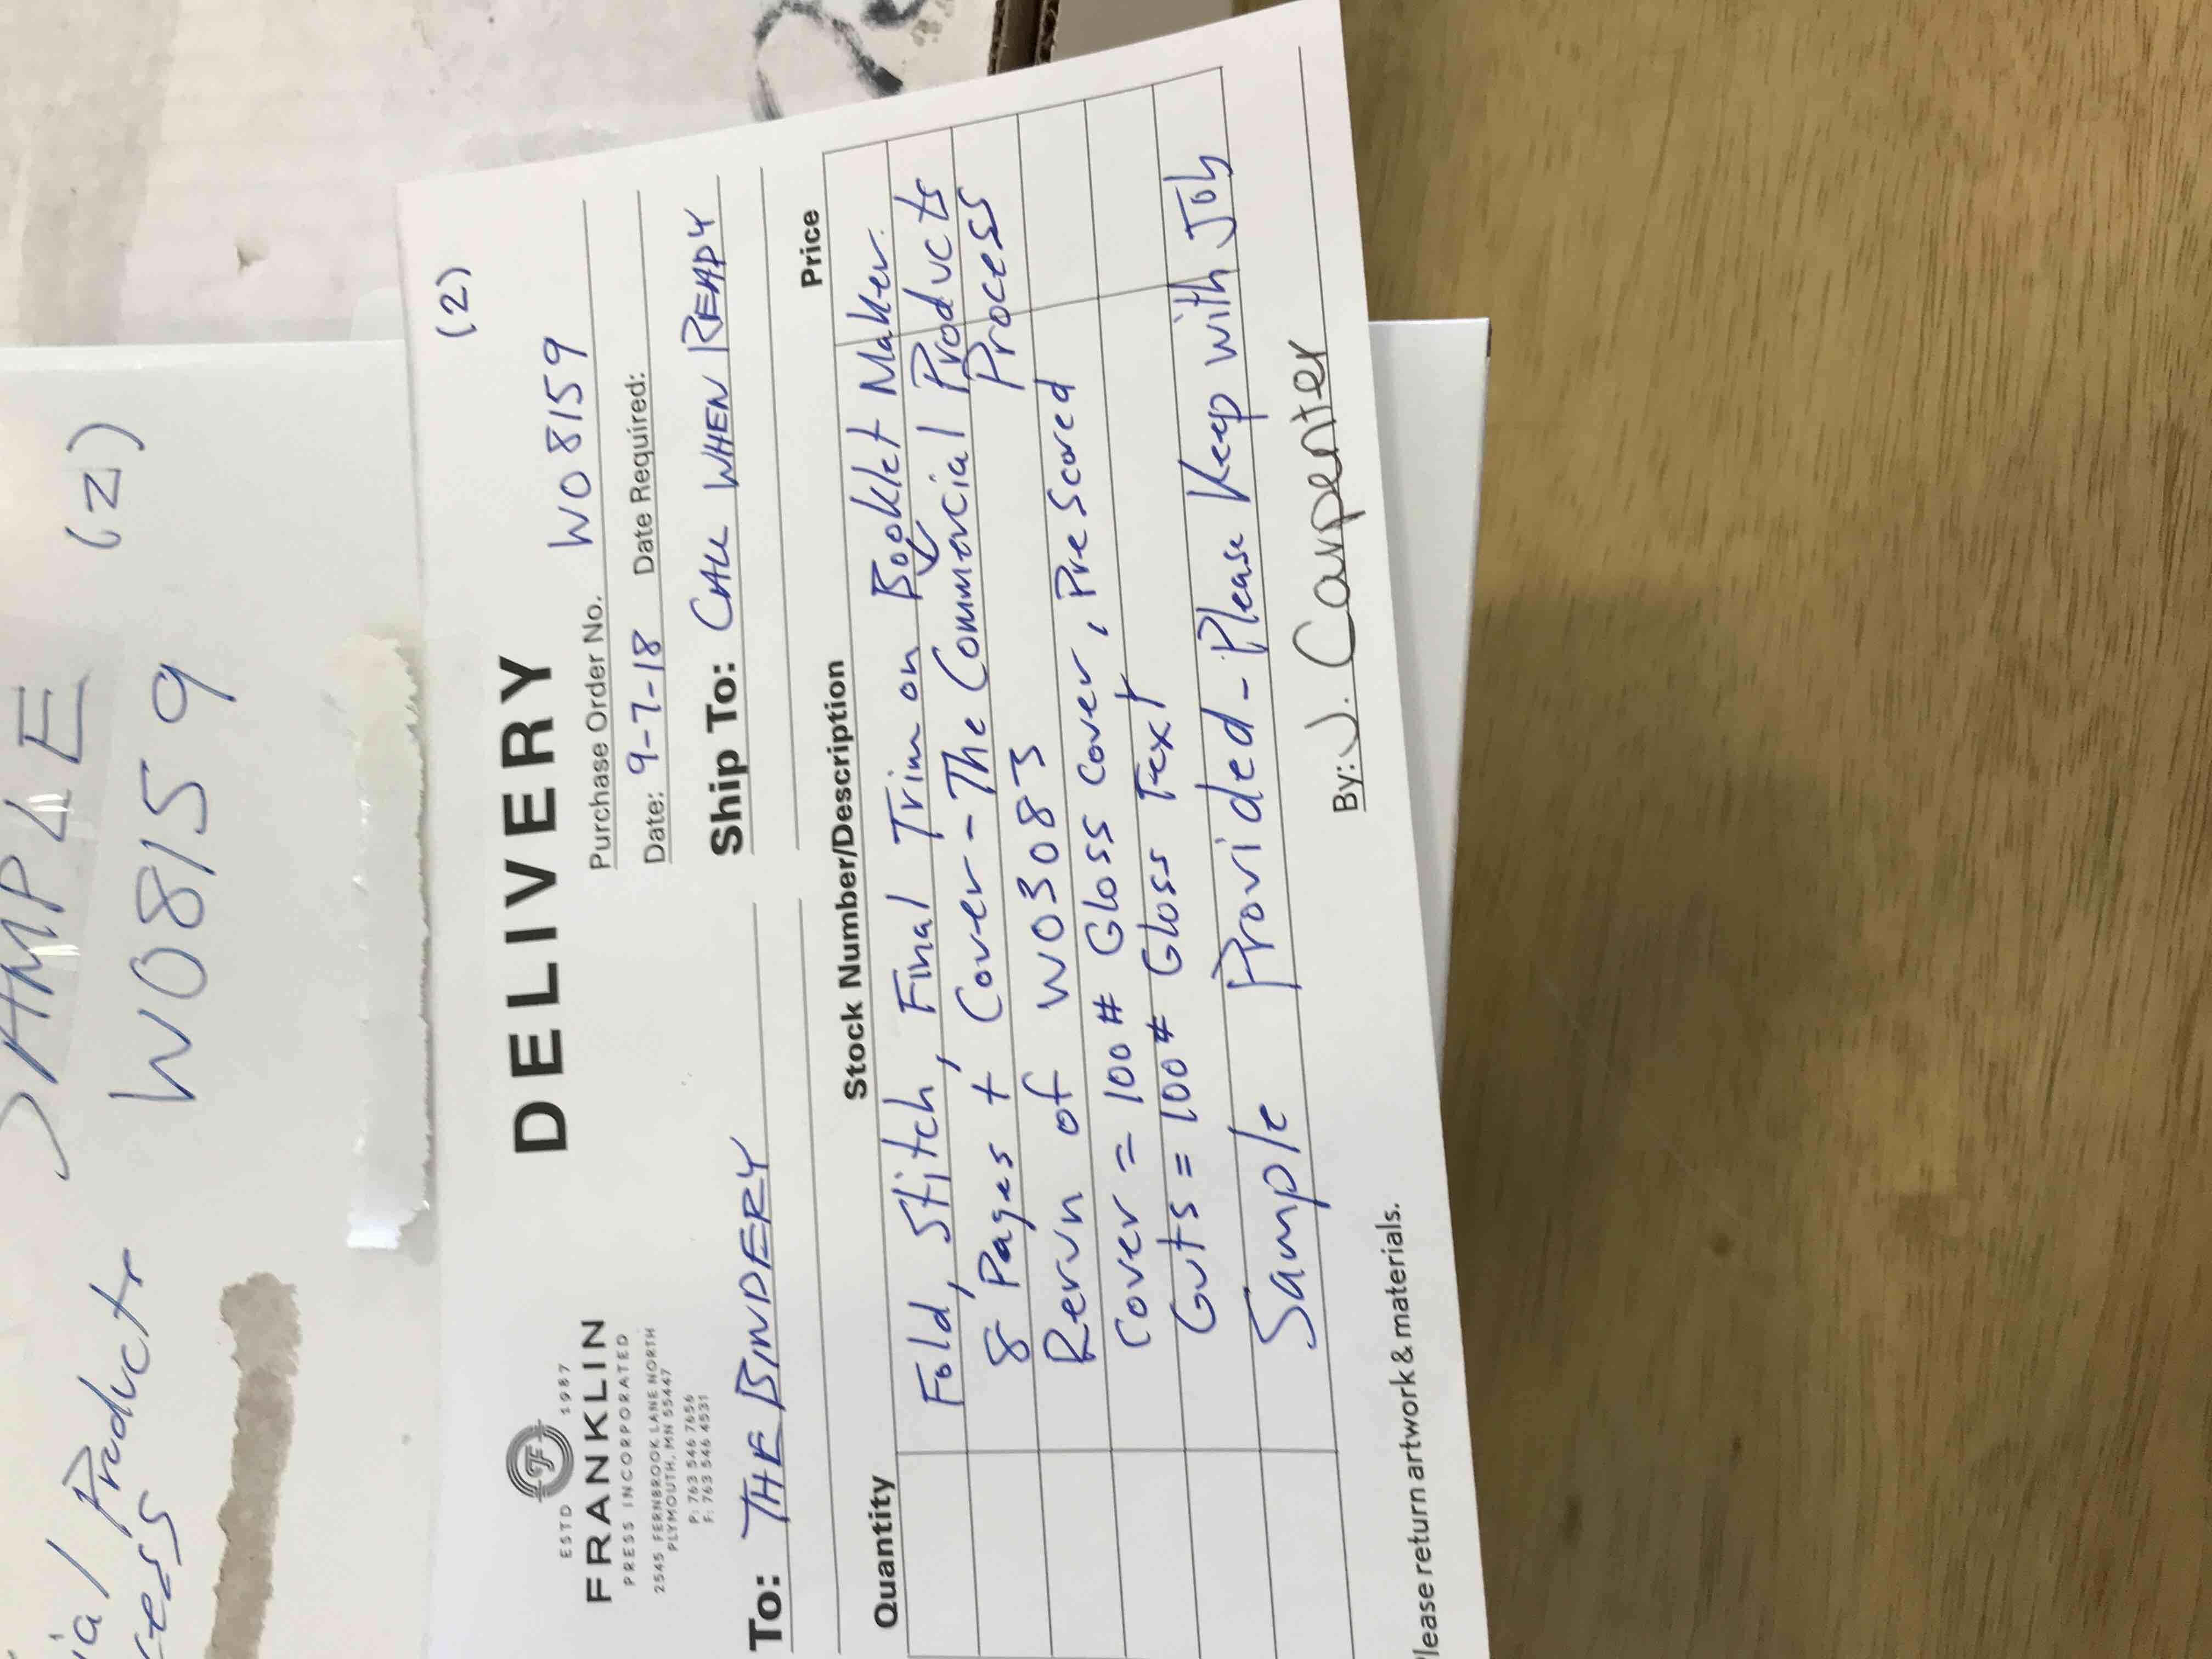 SAMPLE (2)
W08159
ial Products
cess
(2)
ESTD 1987
FRANKLIN
PRESS INCORPORATED
2545 FERNBROOK LANE NORTH
PLYMOUTH, MN 55447
P: 763 546 7656
F: 763 546 4531
DELIVERY
Purchase Order No. W08159
Date: 9-7-18 Date Required:
To: THE BINDERY
Ship To: CALL WHEN READY
Quantity Stock Number/Description Price
Fold, Stitch, Final Trim on Booklet Maker.
8 Pages + Cover - The Commercial Products Process
Rerun of W03083
Cover = 100# Gloss Cover, PreScored
Guts = 100# Gloss Text
Sample Provided - Please Keep with Job
Please return artwork & materials.
By: J. Carpenter